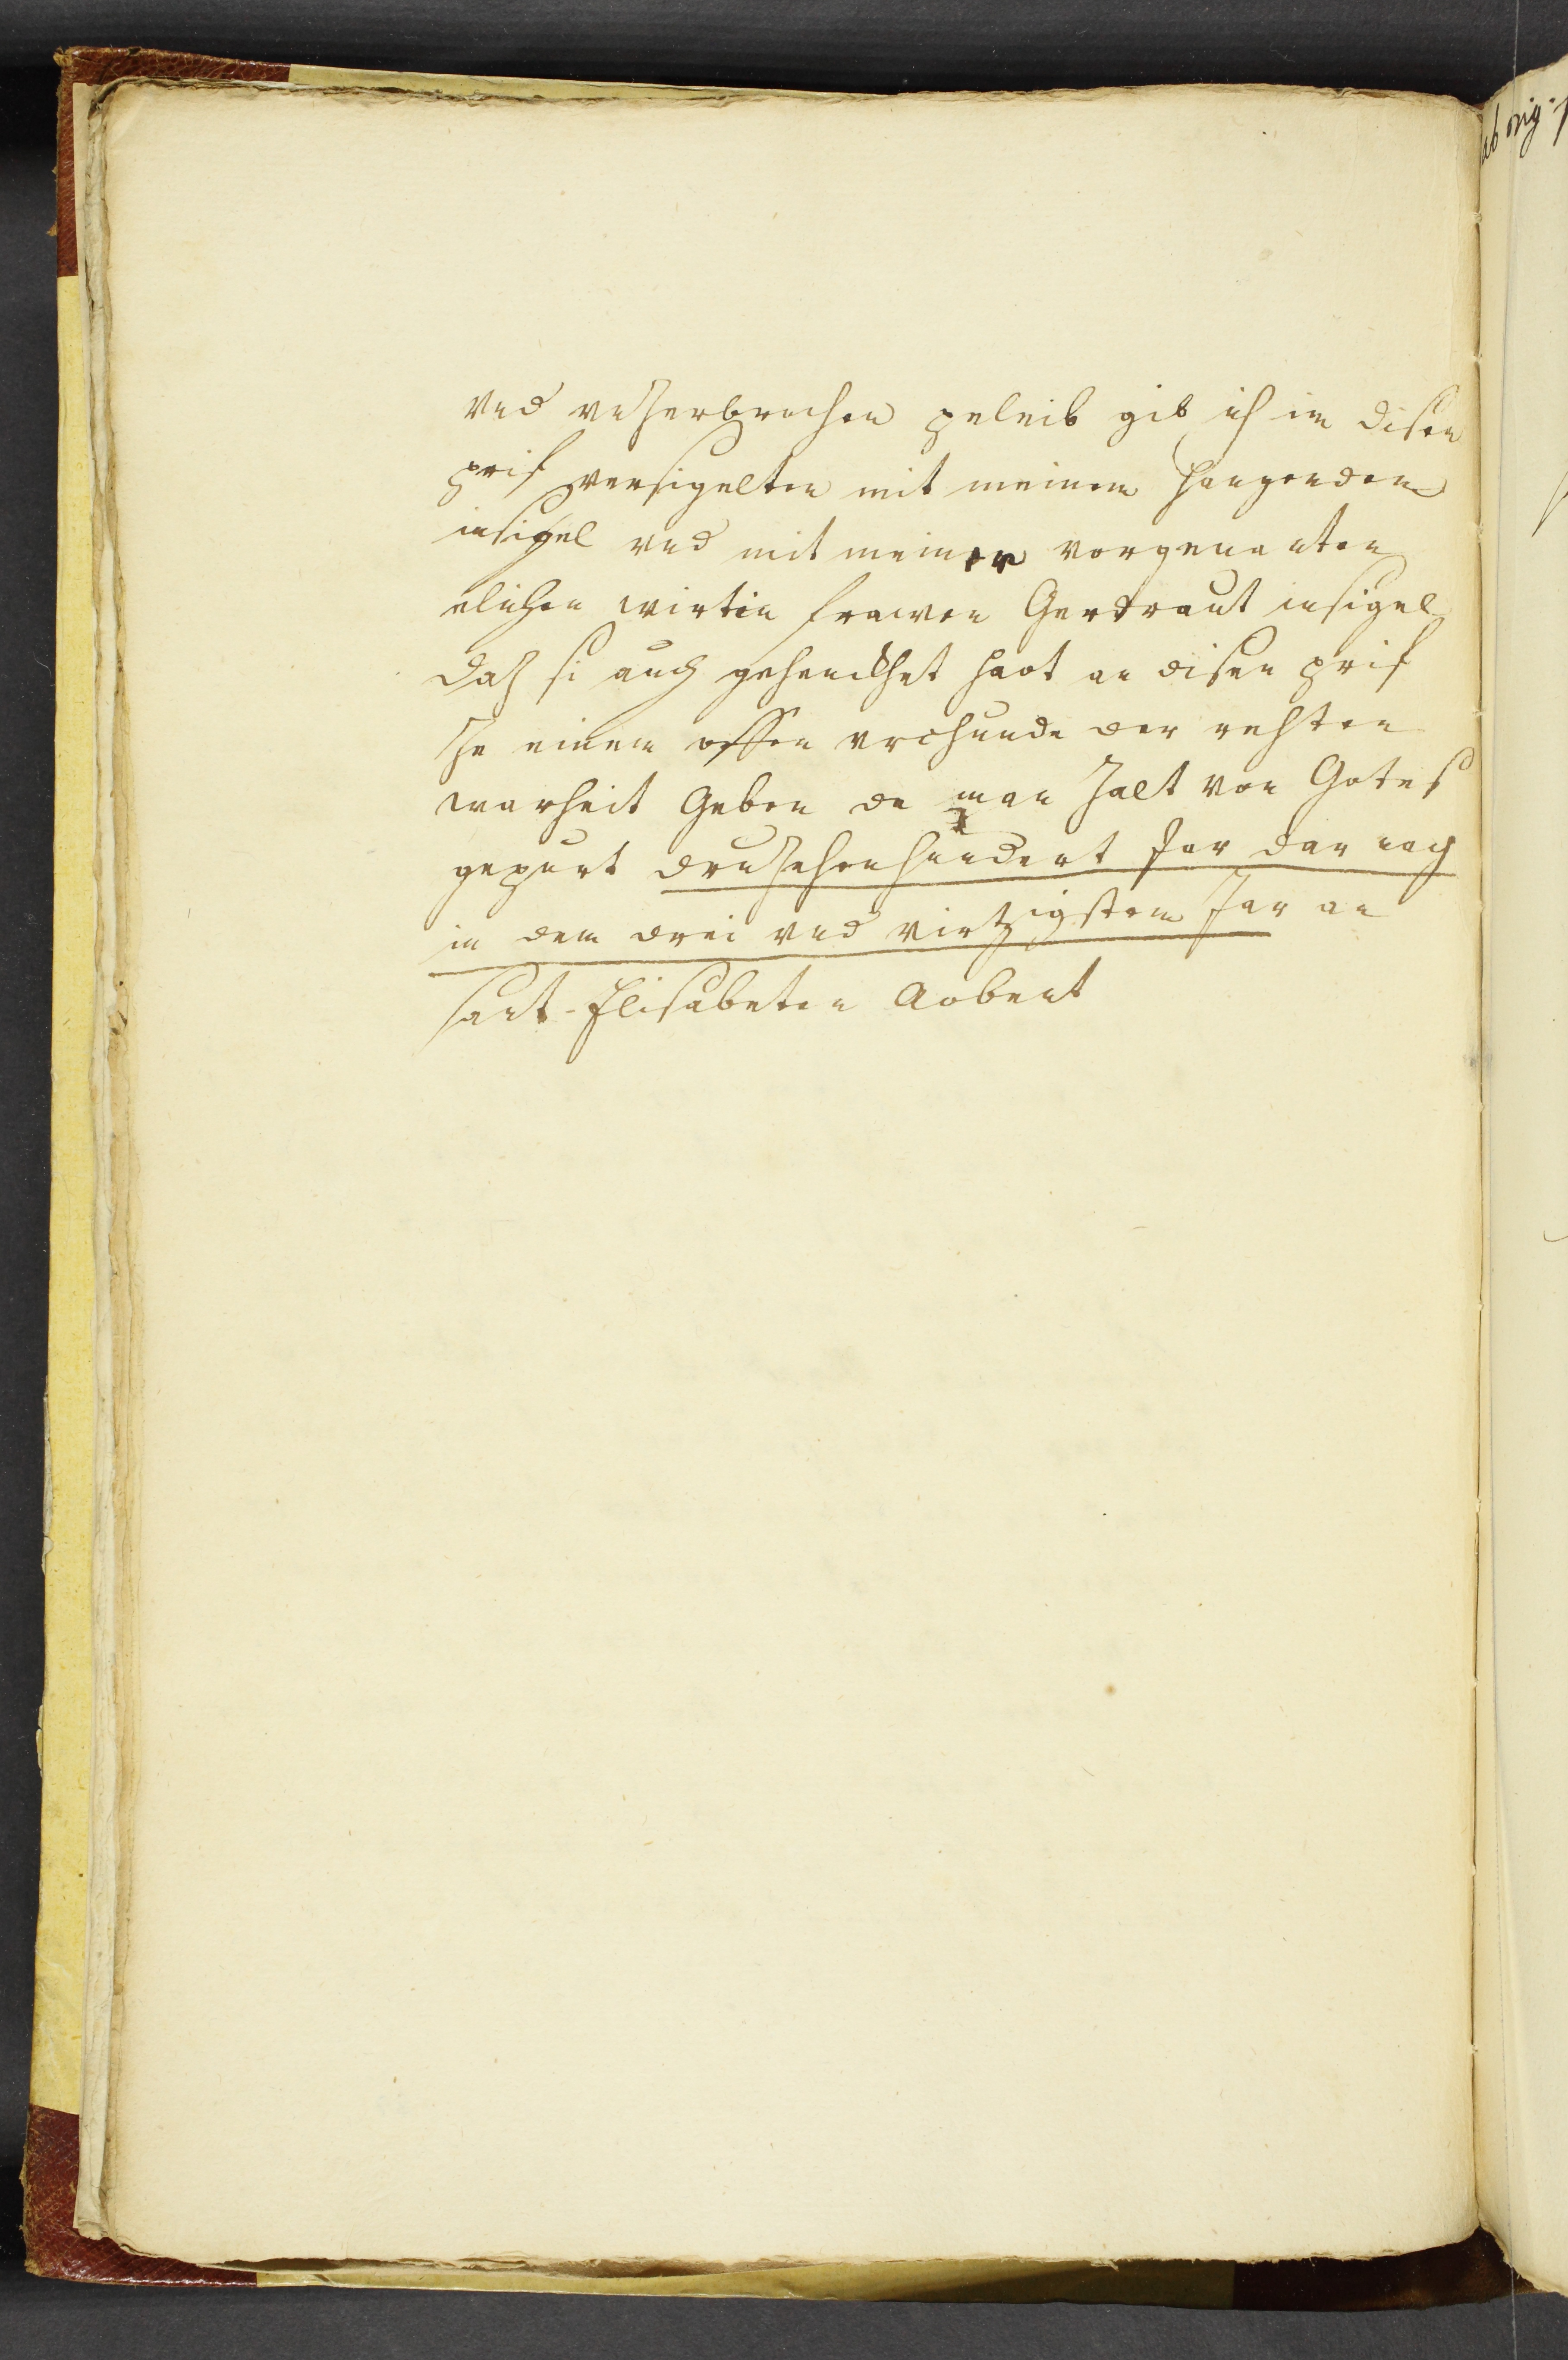 vnd vnzerbrochen peleib gib ich im disen
prif versigelten mit meinem hangenden
insigel vnd mit meiner vorgenanten
elichen wirtin frawen Gertraut insigel
daz si auch gehenckhet haot an disen prif
ze einem offen vrchunde der rehten
warheit Geben da man zalt von Gotes
gepurt druzehenhundert Jar dar nach
in dem drei vnd virtzigstem Jar an
sant Elisabeten Aobent
ab orig: